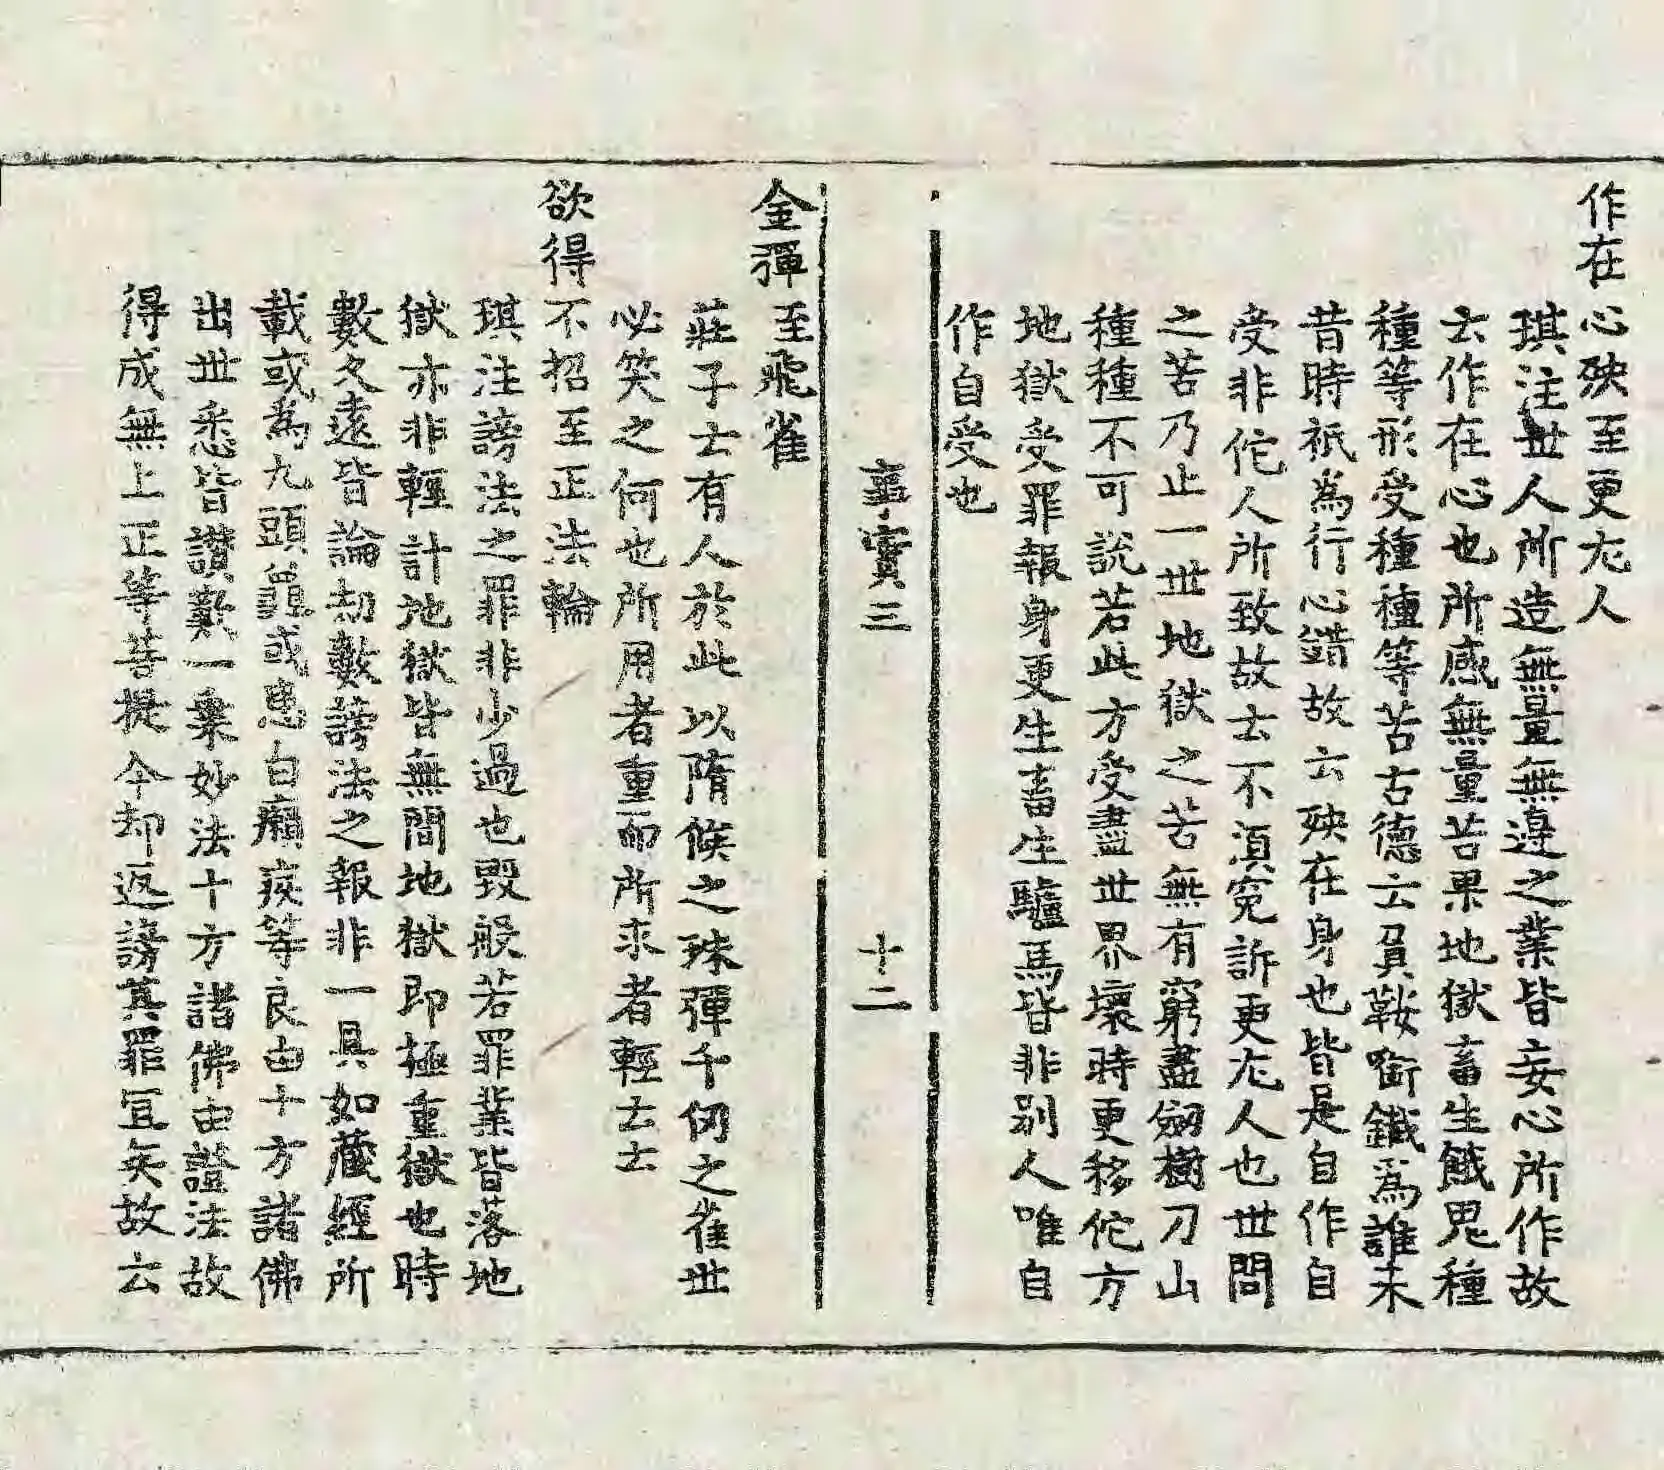 作在心殃至更尤人
琪注世人所造無量無邊之業皆妄心所作故
云作在心也所感無量苦果地獄畜生餓鬼種
種等形受種種等苦古德云負鞍銜鐵為誰未
昔時祇為行心錯故云殃在身也皆是自作自
受非佗人所致故云不湏寃訴更尤人也世間
之苦乃止一世地獄之苦無有窮盡劒樹刀山
種種不可說若此方受盡世界壞時更移佗方
地獄受罪報身更生畜生驢馬皆非別人唯自
作自受也
事實三　十二
金彈至飛雀
莊子士有人於此以隋候之珠彈千仞之雀世
必笑之何也所用者重而所求者輕士士
欲得不招至正法輪
琪注謗法之罪非少過也毀般若罪業皆落地
獄亦非輕計地獄皆無間地獄即極重獄也時
數久遠皆論劫數謗法之報非一具如藏經所
載或為九頭龜或患白癩疾等良由十方諸佛
出世悉皆讃歎一乗妙法十方諸佛由證法故
得成無上正等菩提今却返謗其罪冝矣故云